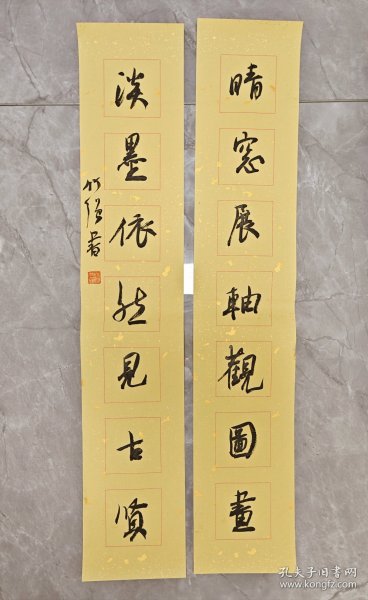 晴窓展軸觀圖畫
淡墨依然見古賢
孔夫子旧书网
www.kongfz.com